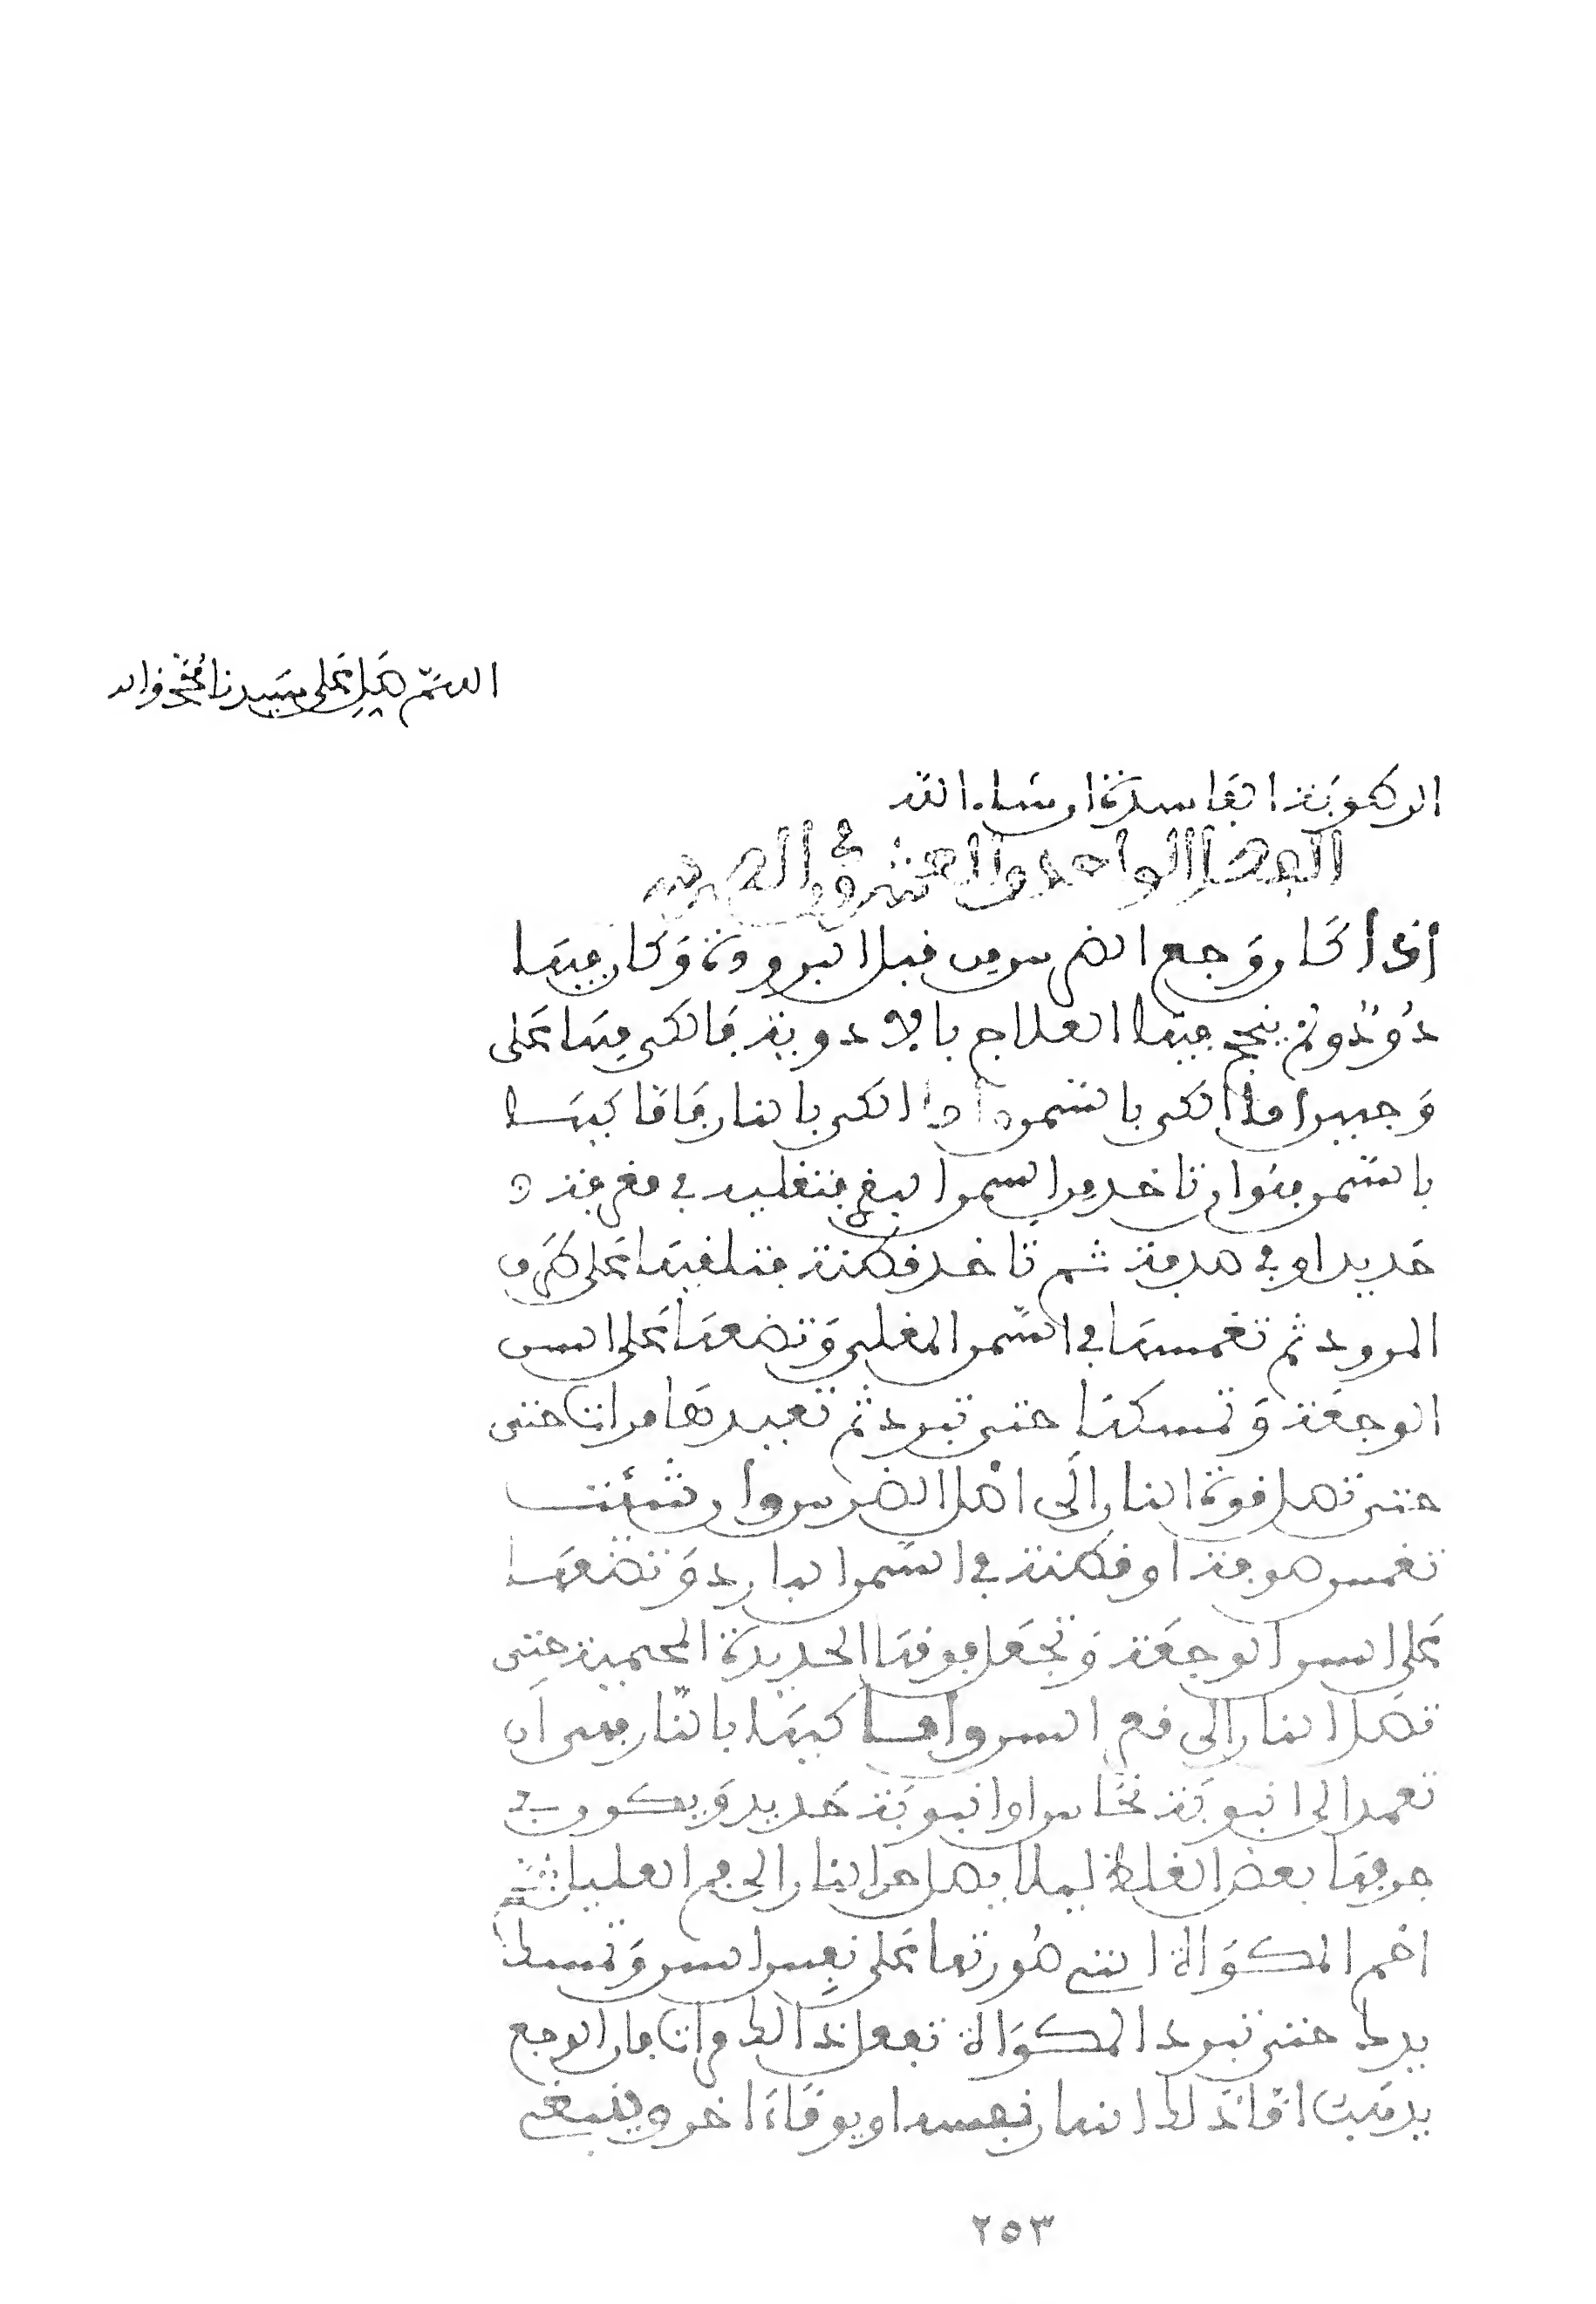 اللهم صل على سيدنا محمد واله
الرطوبة الفاسدة ان شاء الله
الفصل الواحد والعشرون في الضرس
اذا كان وجع الضرس من قبل البرودة وكان فيها
دود ولم ينجح فيها العلاج بالادوية فالكي فيها على
وجهين اما الكي بالسمن واما الكي بالنار فاما كيها
بالسمن فهو ان تاخذ من السمن البقري فتغليه في مغرفة
حديد او في صدفة ثم تاخذ قطنة فتلفيها على طرف
المرود ثم تغمسها في السمن المغلي وتضعها على السن
الوجعة وتمسكها حتى تبرد ثم تعيدها مرات حتى
حتى تصل قوة النار الى اصل الضرس وان شئت
تغمس صوفة او قطنة في السمن البارد وتضعها
على السن الوجعة وتجعل فوقها الحديدة المحمية حتى
تصل النار الى قعر السن واما كيها بالنار فهي ان
تعمد الى انبوبة نحاس او انبوبة حديد ويكون في
جرفها بعض الغلظ ليلا يصل حر النار الى فم العليل ثم
احم المكواة التي صورتها على نفس السن وتمسك
يدك حتى تبرد المكواة تفعل ذالك مرات فان الوجع
يذهب اما ذلك النهار نفسه او يوما اخر وينبغي
٢٥٣